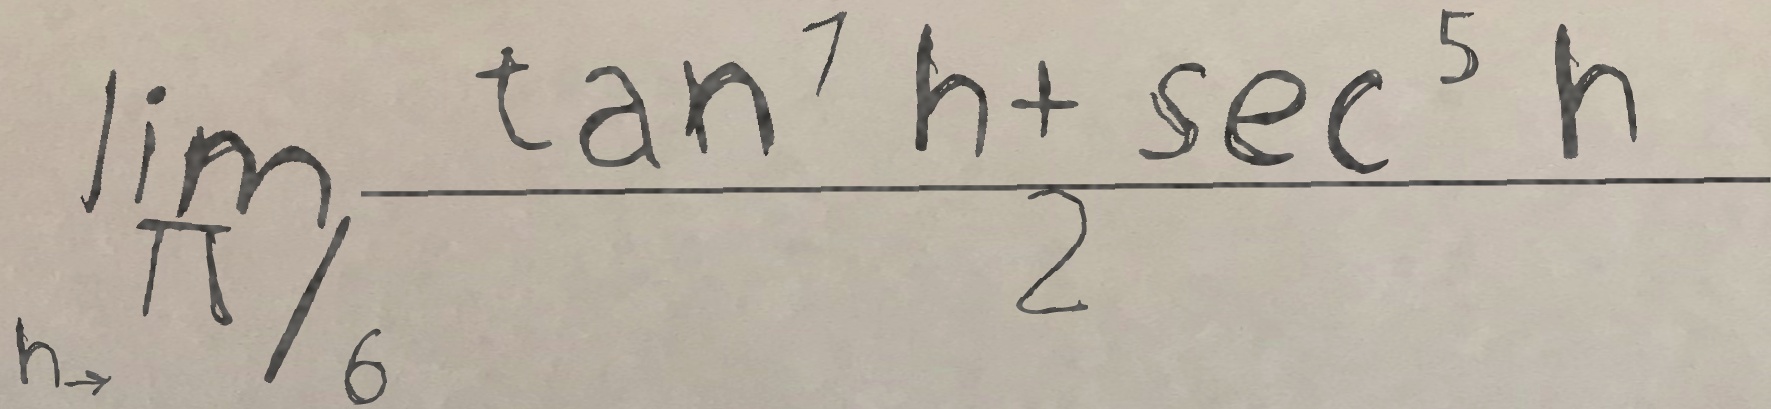 lim_{h→π/6} \frac{tan^7 h + sec^5 h}{2}